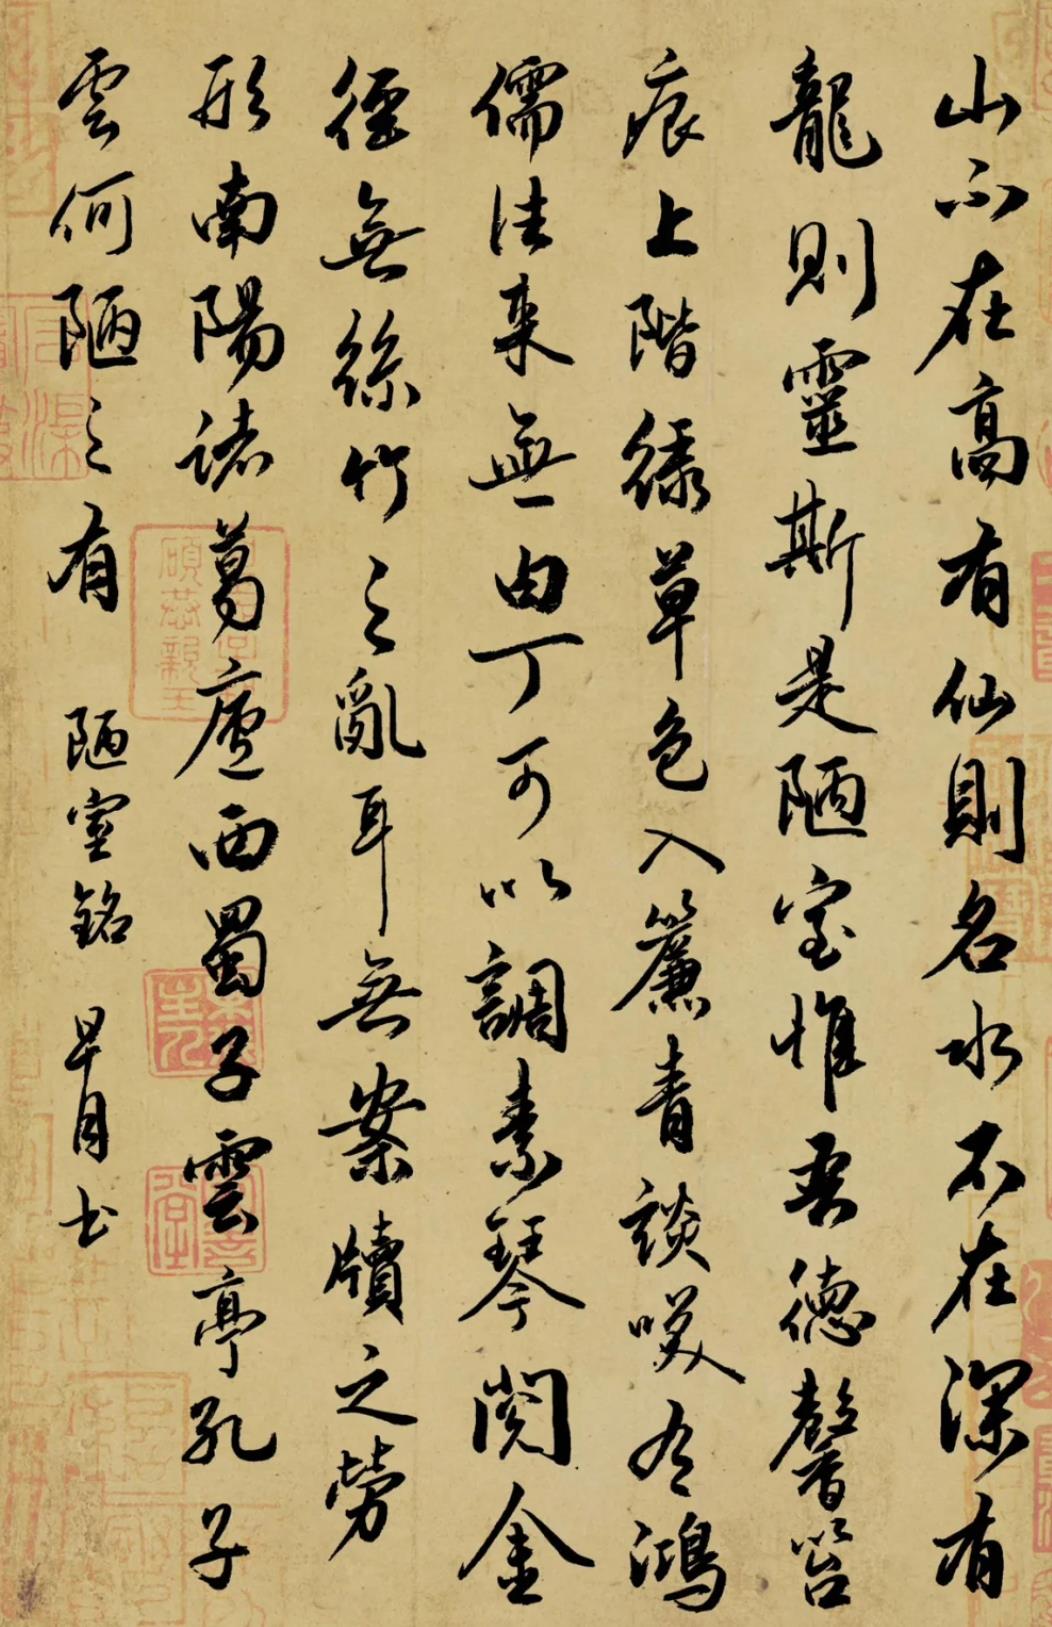 山不在高有仙則名水不在深有
龍則靈斯是陋室惟吾德馨苔
痕上階綠草色入簾青談笑有鴻
儒往來無白丁可以調素琴閱金
徑無絲竹之亂耳無案牘之勞
形南陽諸葛廬西蜀子雲亭孔子
雲何陋之有 陋室銘 早月書